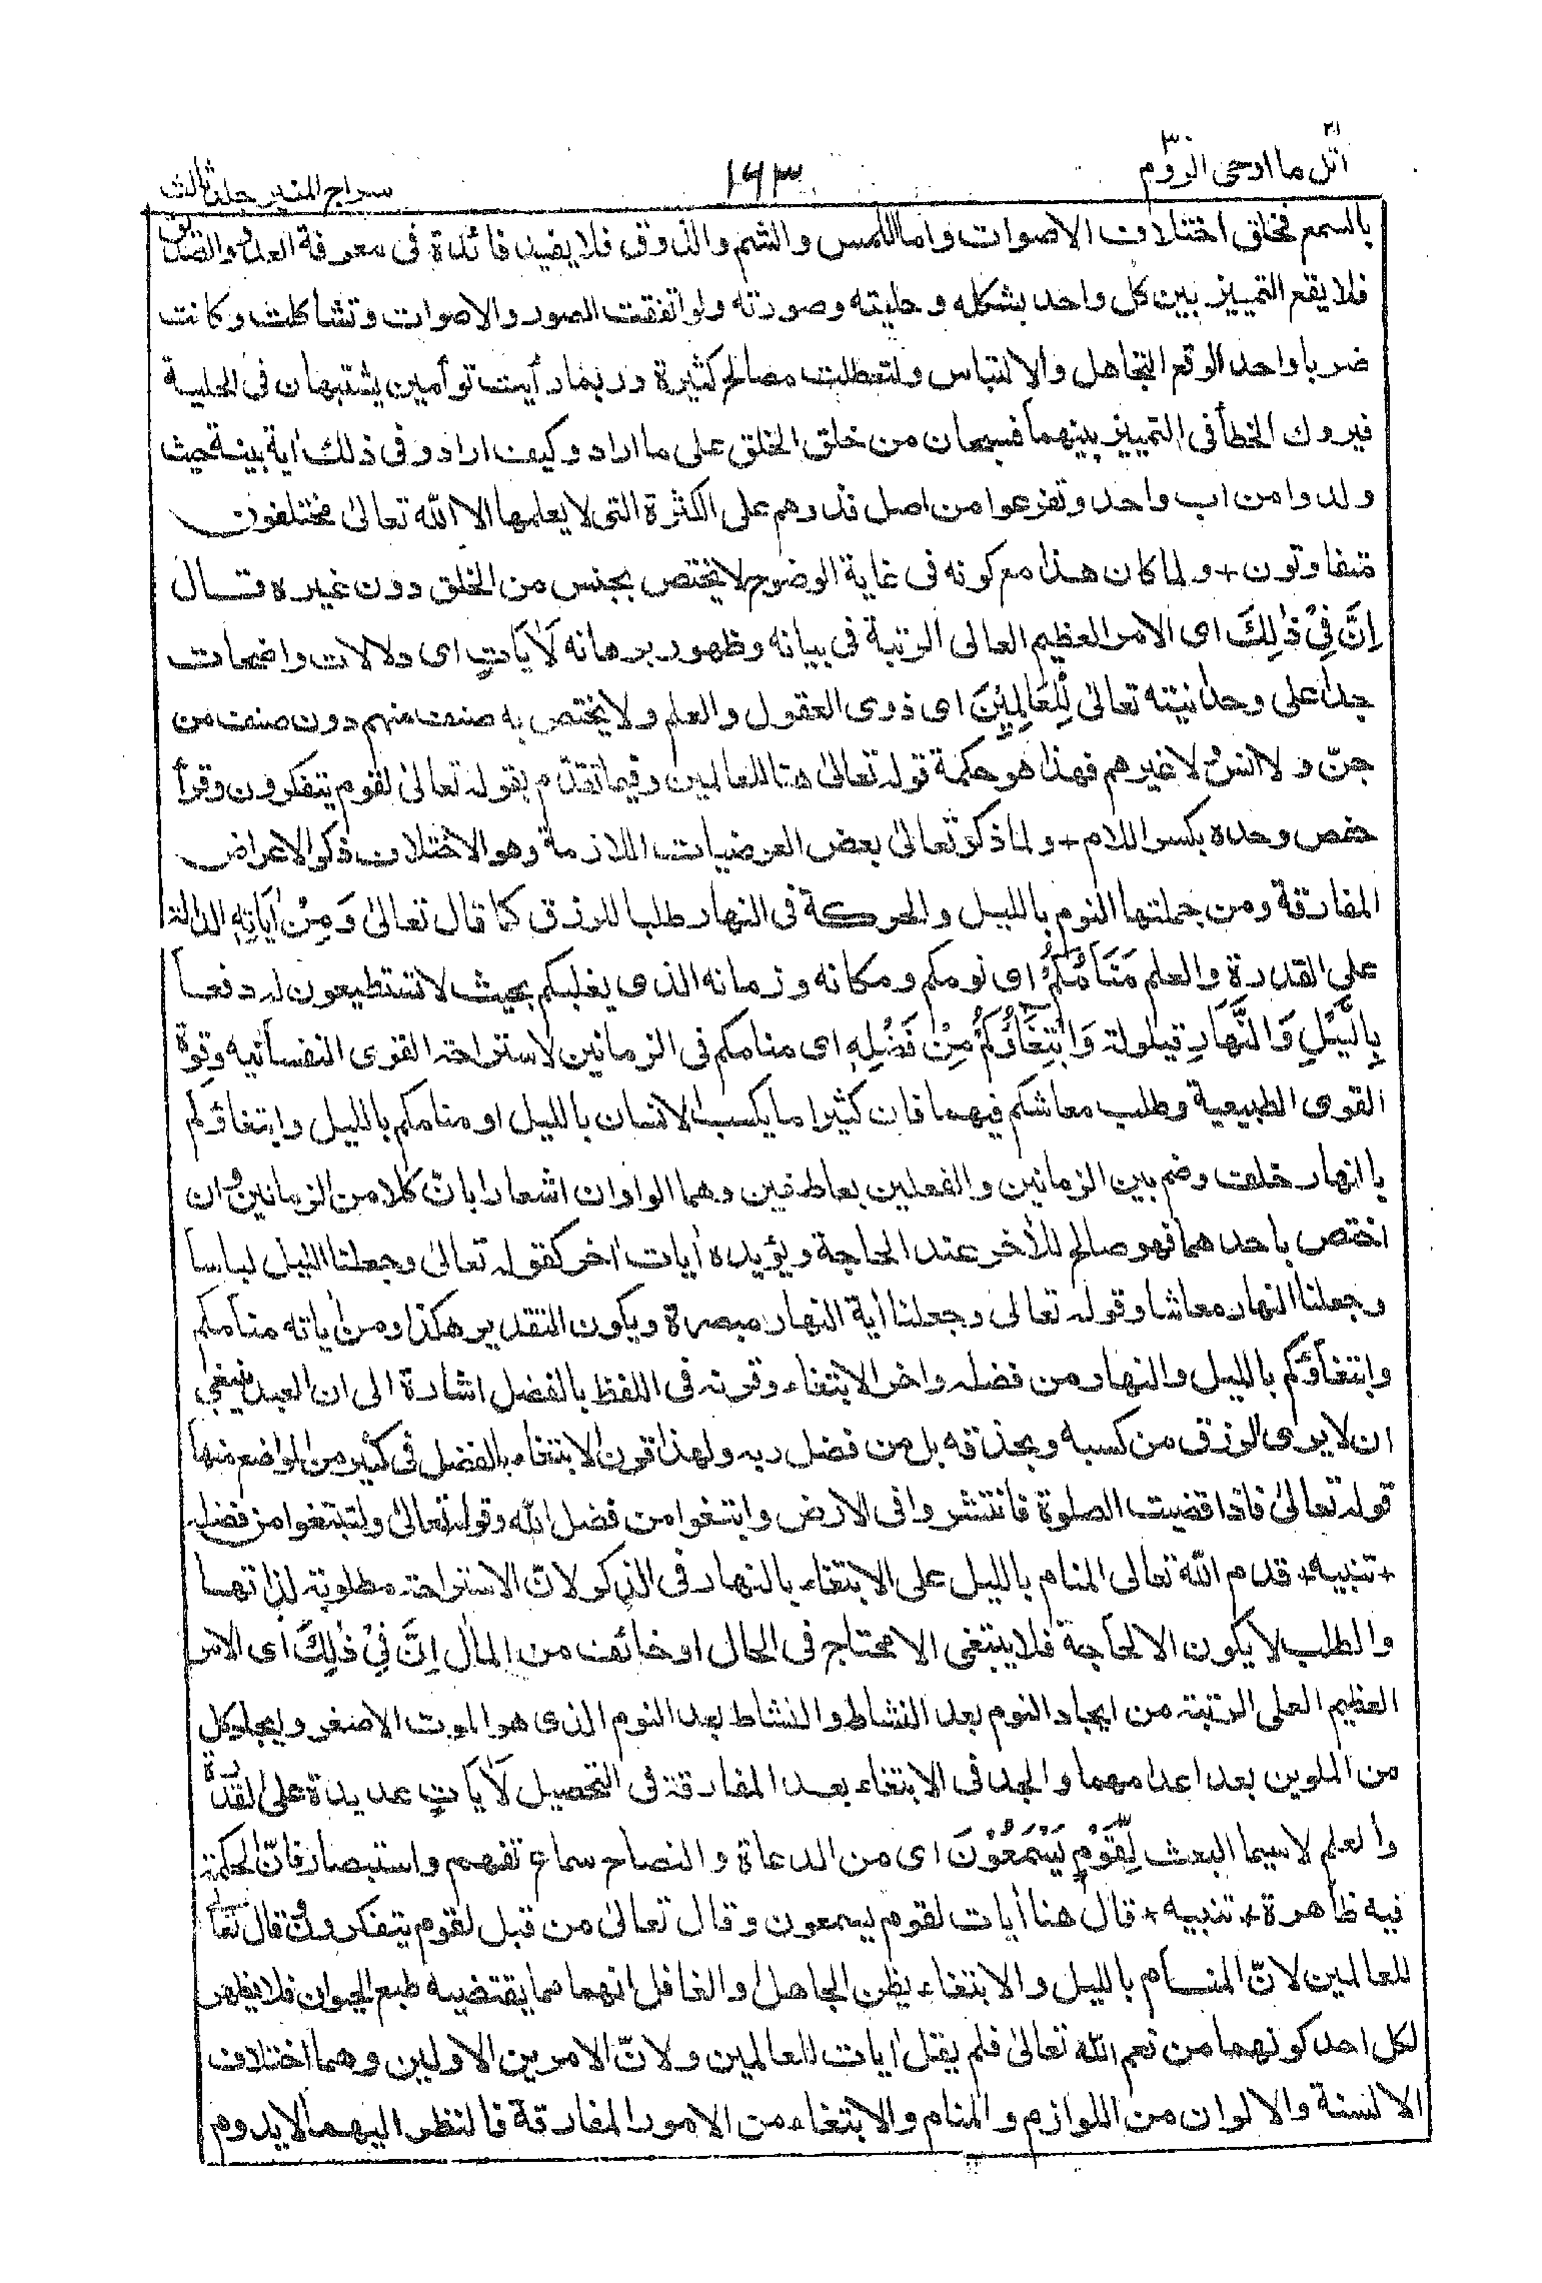 اتل ما اوحی ٢١ الروم ٣٠
١٦٣
سراج المنیر جلد ثالث
بالسمع فخلق اختلاف الاصوات واما اللمس والشم والذوق فلا يفيد فائدة فى معرفة العدو والصديق
فلا يقع التمييز بين كل واحد بشكله وحليته وصورته ولو اتفقت الصور والاصوات وتشاكلت وكانت
ضربا واحد الوقع التجاهل والالتباس ولتعطلت مصالح كثيرة وربما رأيت توأمين يشتبهان فى الحلية
فيروك الخطأ فى التمييز بينهما فسبحان من خلق الخلق على ما اراد وكيف اراد وفى ذلك اٰية بينة حيث
ولدوا من اب واحد وتفرعوا من اصل فذ وهم على الكثرة التى لا يعلمها الا الله تعالىٰ مختلفون
متفاوتون + ولما كان هذا مع كونه فى غاية الوضوح لا يختص بجنس من الخلق دون غيره قال
اِنَّ فِيْ ذٰلِكَ اى الامر العظيم العالى الرتبة فى بيانه وظهور برهانه لَاٰيَاتٍ اى دلالات واضحات
جدا على وحدانيته تعالىٰ لِّلْعَالِمِيْنَ اى ذوى العقول والعلم ولا يختص به صنف منهم دون صنف من
جنّ ولا انس ولا غيرهم فهذا هو حكمة قوله تعالىٰ هنا للعالمين وفيما تقدّم بقوله تعالىٰ لقوم يتفكرون وقرأ
حفص وحده بكسر اللام + ولما ذكر تعالىٰ بعض العرضيات اللازمة وهو الاختلاف ذكر الاعراض
المفارقة ومن جملتها النوم بالليل والحركة فى النهار طلبا للرزق كما قال تعالىٰ وَمِنْ اٰيَاتِهٖ الدالة
على القدرة والعلم مَنَامُكُمْ اى نومكم ومكانه وزمانه الذى يغلبكم بحيث لا تستطيعون له دفعا
بِاللَّيْلِ وَالنَّهَارِ قيلولة وَابْتِغَاؤُكُمْ مِنْ فَضْلِهٖ اى منامكم فى الزمانين لاستراحة القوى النفسانيه وقوة
القوى الطبيعية وطلب معاشكم فيهما فان كثيرا ما يكسب الانسان بالليل او منامكم بالليل وابتغاؤكم
بالنهار خلف وضم بين الزمانين والفعلين بعاطفين وهما الواوان اشعارا بانّ كلا من الزمانين وان
اختص باحدهما فهو صالح للاٰخر عند الحاجة ويؤيده اٰيات اخر كقوله تعالىٰ وجعلنا الليل لباسا
وجعلنا النهار معاشا وقوله تعالىٰ وجعلنا اٰية النهار مبصرة ويكون التقدير هكذا ومن اٰياته منامكم
وابتغاؤكم بالليل والنهار من فضله واخر الابتغاء وقرنه فى اللفظ بالفضل اشارة الى ان العبد ينبغى
ان لا يرى الرزق من كسبه وبحذقه بل من فضل ربه ولهذا قرن الابتغاء بالفضل فى كثير من المواضع منها
قوله تعالىٰ فاذا قضيت الصلوة فانتشروا فى الارض وابتغوا من فضل الله وقوله تعالىٰ ولتبتغوا من فضله
+ تنبيه + قدم الله تعالى المنام بالليل على الابتغاء بالنهار فى الذكر لانّ الاستراحة مطلوبة لذاتها
والطلب لا يكون الا لحاجة فلا يبتغى الا محتاج فى الحال او خائف من المآل اِنَّ فِيْ ذٰلِكَ اى الامر
العظيم العلى الرتبة من ايجاد النوم بعد النشاط والنشاط بعد النوم الذى هو الموت الاصغر وايجاد كل
من الملوين بعد اعدامهما والجد فى الابتغاء بعد المفارقة فى التحصيل لَاٰيَاتٍ عديدة على القدرة
والعلم لا سيما البعث لِّقَوْمٍ يَسْمَعُوْنَ اى من الدعاة والنصاح سماع تفهم واستبصار فانّ الحكمة
فيه ظاهرة + تنبيه + قال هنا اٰيات لقوم يسمعون وقال تعالىٰ من قبل لقوم يتفكرون وقال تعالىٰ
للعالمين لانّ المنام بالليل والابتغاء يظن الجاهل والغافل انهما مما يقتضيه طبع الحيوان فلا يظهر
لكل احد كونهما من نعم الله تعالىٰ فلم يقل اٰيات للعالمين ولانّ الامرين الاولين وهما اختلاف
الالسنة والالوان من اللوازم والمنام والابتغاء من الامور المفارقة فالنظر اليهما لا يدوم